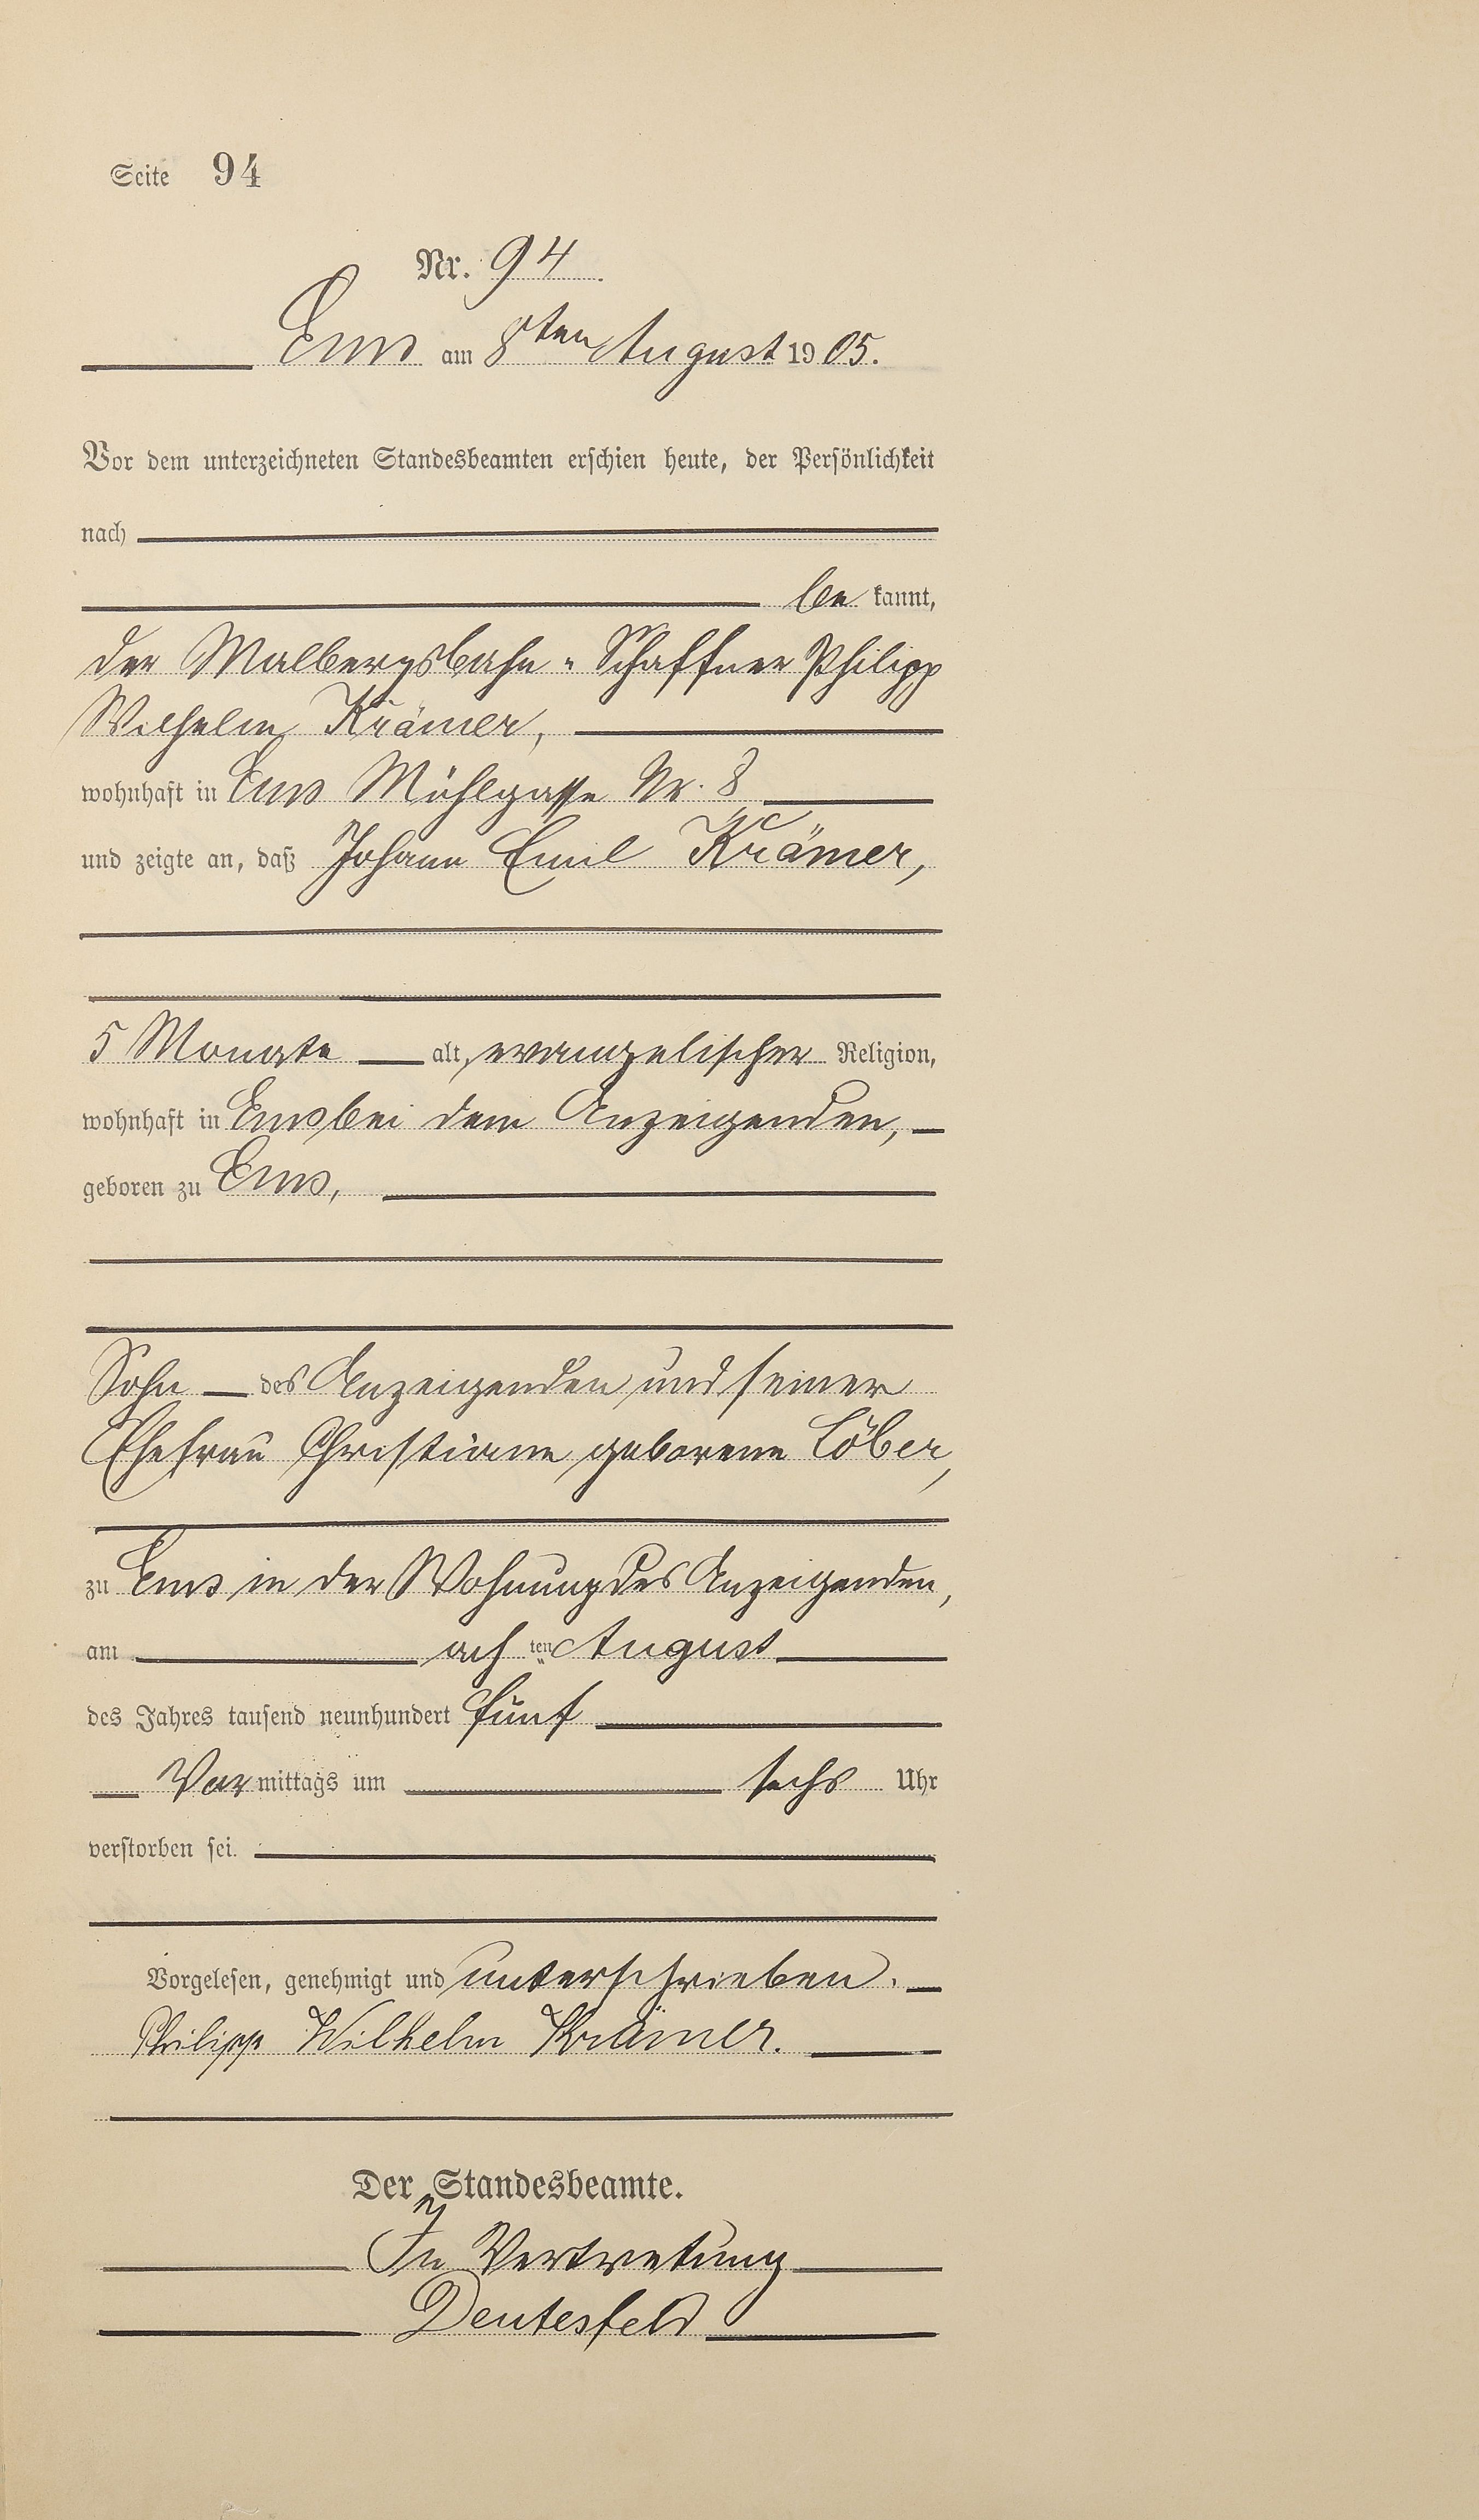 Seite 94
Nr. 94.
Ems am 8ten August 1905.
Vor dem unterzeichneten Standesbeamten erschien heute, der Persönlichkeit
nach
be kannt,
der Malbergsbahn-Schaffner Philipp
Wilhelm Krämer,
wohnhaft in Ems Mühlgasse Nr. 8
und zeigte an, daß Johann Emil Krämer,
5 Monate alt, evangelischer Religion,
wohnhaft in Ems bei dem Anzeigenden,
geboren zu Ems,
Sohn des Anzeigenden und seiner
Ehefrau Christiane geborene Löber,
zu Ems in der Wohnung des Anzeigenden,
am ach ten August
des Jahres tausend neunhundert fünf
Vor mittags um sechs Uhr
verstorben sei.
Vorgelesen, genehmigt und unterschrieben.
Philipp Wilhelm Krämer.
Der Standesbeamte.
In Vertretung
Deutesfeld